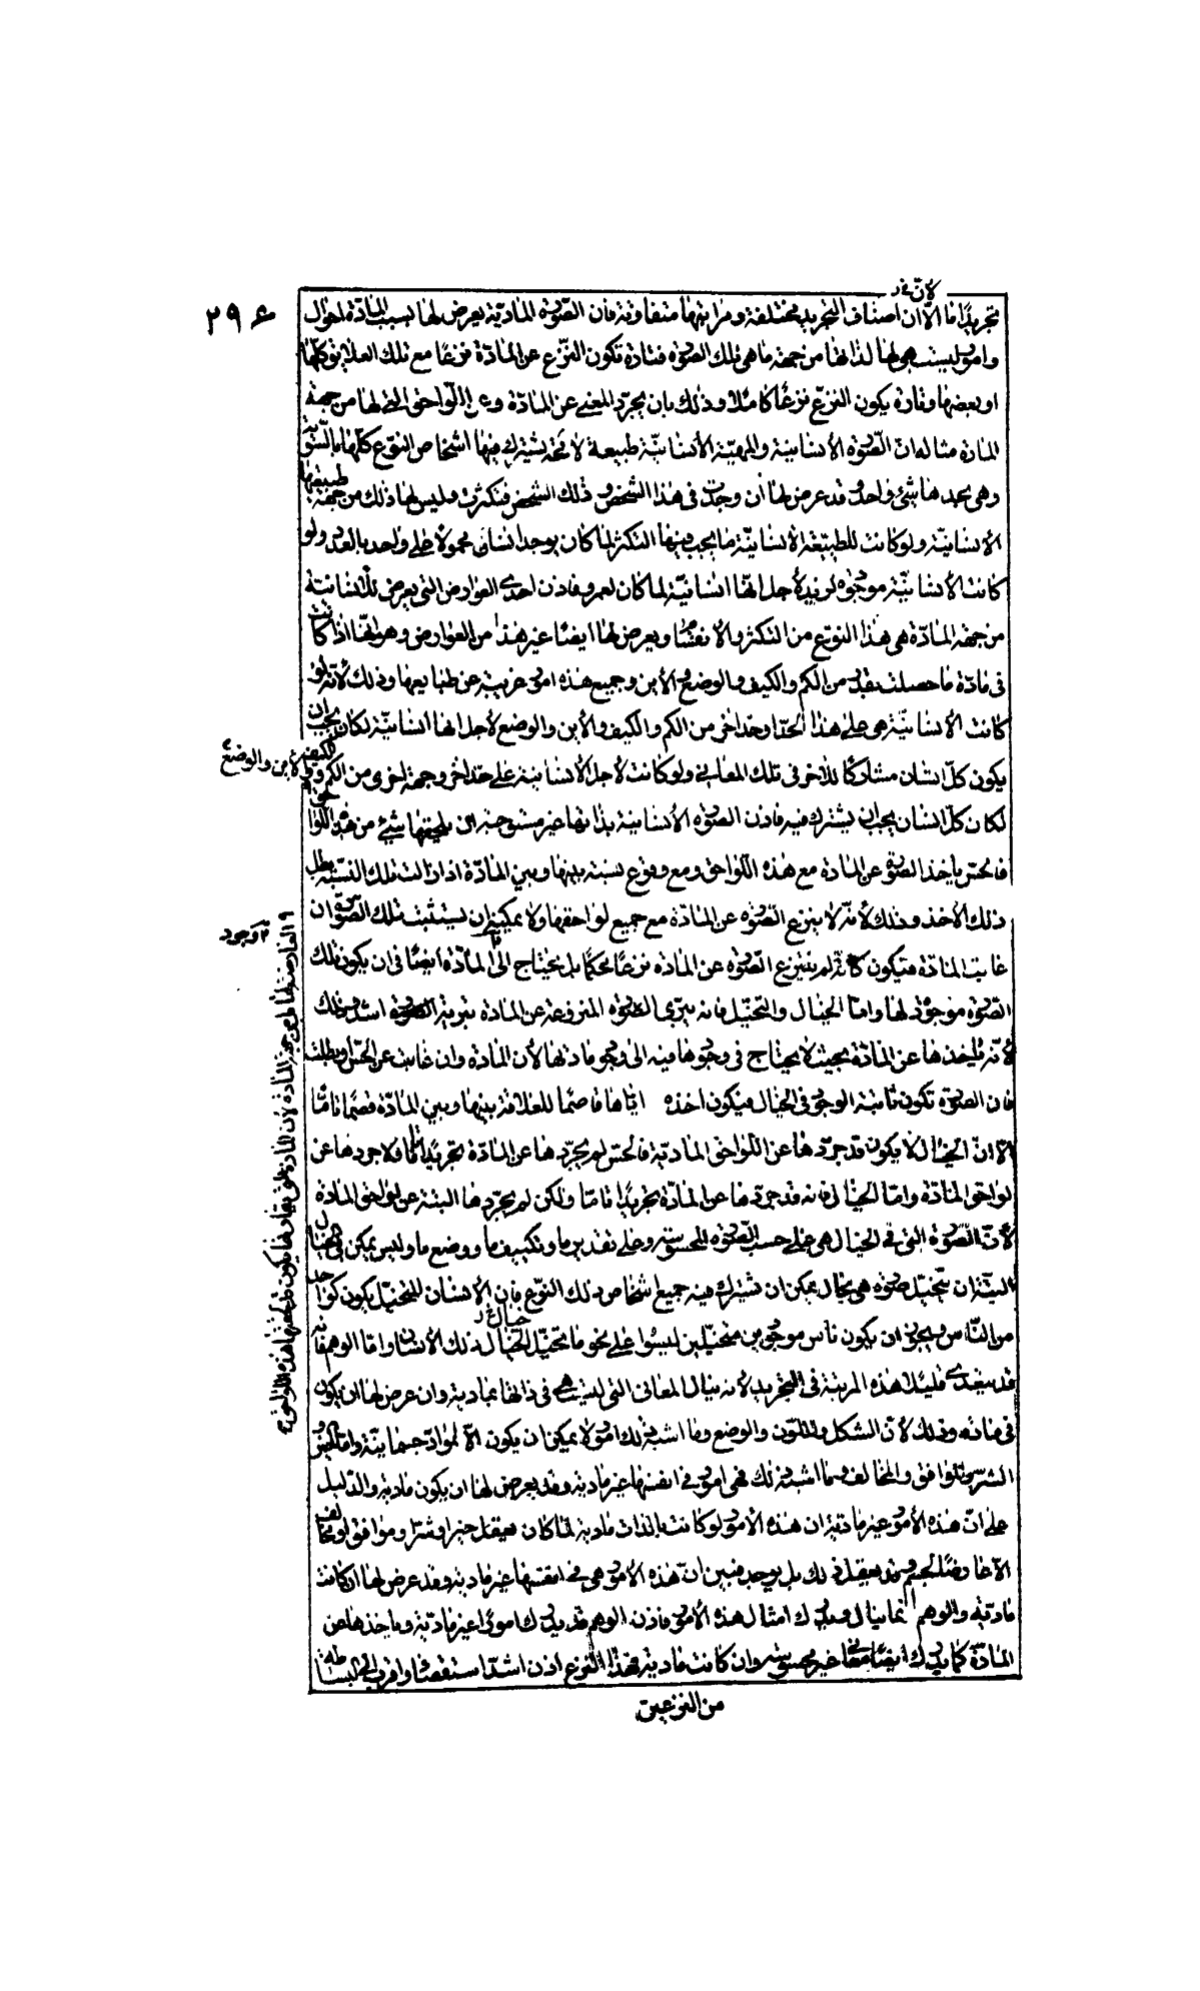 ٢٩۶
لان فى
تجريدًا ما الّا ان اصناف التجريد مختلفة ومراتبها متفاوتة فان الصّورة المادّيّة يعرض لها بسبب المادّة احوال
وامور ليست هى لها لذاتها من جهة ما هى تلك الصورة فتارة تكون النّزع عن المادّة نزعًا مع تلك العلايق كلّها
او بعضها وتارة يكون النزع نزعًا كاملًا وذلك بان يجرّد المعنى عن المادّة وعن اللّواحق التى لها من جهة
المادة مثاله ان الصّورة الأنسانيّة والمهيّة الأنسانيّة طبيعة لا محّة يشترك فيها اشخاص النوع كلّها بالسّويّة
وهى بحدها شئ واحد وقد عرض لها ان وجدت فى هذا الشخص و ذلك الشخص فتكثرت وليس لها ذلك من جهة طبيعتها
الأنسانيّة ولو كانت للطبيعة الأنسانيّة ما يجب فيها التكثر لما كان يوجد انسان محمولًا على واحد بالعدد ولو
كانت الأنسانيّة موجودة لزيد لأجل انّها انسانيّة لما كان لعمرو فاذن احدى العوارض التى يعرض للأنسانيّة
من جهة المادّة هى هذا النوع من التكثر والأنقسام ويعرض لها ايضًا غير هذا من العوارض وهو انّها اذا كانت
فى مادّة ما حصلت بقدر من الكم والكيف والوضع والأين وجميع هذه امور غريبة عن طبايعها وذلك لأنّه لو
كانت الأنسانيّة هى على هذا الحدّ او حدّ اخر من الكم والكيف والأين والوضع لأجل انها انسانيّة لكان يجب ان
يكون كلّ انسان مشاركًا للآخر فى تلك المعانى ولو كانت لأجل الأنسانية على حدّ اخر وجهة اخرى من الكم و
الكيف والأين والوضع
لكان كلّ انسان يجب ان يشترك فيه فاذن الصورة الأنسانية بذاتها غير مستوجبة ان يلحقها شئ من هذه اللواحق
فالحسّ ياخذ الصّورة عن المادة مع هذه اللّواحق ومع وقوع نسبة بينها وبين المادّة اذا زالت تلك النّسبة بطل
ذلك الأخذ وذلك لأنّه لا ينزع الصّورة عن المادّة مع جميع لواحقها ولا يمكنه ان يستثبت تلك الصّورة ان
غابت المادّة فيكون كانّه لم ينتزع الصّورة عن المادة نزعًا محكمًا بل يحتاج الى وجود المادّة ايضًا فى ان يكون تلك
الصّورة موجودة لها وامّا الخيال والتخيّل فانه يبرّى الصّورة المنزوعة عن المادة تبرية اشدّ وذلك
لأنّه ياخذها عن المادّة بحيث لا يحتاج فى وجودها فيه الى وجود مادتها لأن المادة وان غابت عن الحسّ او بطلت
فان الصورة تكون ثابتة الوجود فى الخيال فيكون اخذه ايّاها قاصمًا للعلاقة بينها وبين المادّة قصمًا تامًّا
الّا انّ الخيال لا يكون قد جرّدها عن اللواحق المادّيّة فالحسّ لم يجرّدها عن المادّة تجريدًا تامًّا ولا جردها عن
لواحق المادّة وامّا الخيال فانه قد جرّدها عن المادّة تجريدًا تامًّا ولكن لم يجرّدها البتة عن لواحق المادّة
لأنّ الصّورة التى فى الخيال هى على حسب الصّورة المحسوسة وعلى تقدير ما وتكييف ما ووضع ما وليس يمكن فى الخيال
البتّة ان يتخيّل صورة هى بحال يمكن ان يشترك فيه جميع اشخاص ذلك النّوع فان الأنسان المتخيّل يكون كواحد
من النّاس ويجوز ان يكون ناس موجودين متخيّلين ليسوا على نحو ما تخيّل الخيال ذلك الأنسان وامّا الوهم فانّه
قد يتعدّى قليلًا هذه المرتبة فى التجريد لأنه ينال المعانى التى ليست هى فى ذاتها بمادية وان عرض لها ان يكون
فى مادّة وذلك لأنّ الشكل واللّون والوضع وما اشبه ذلك امور لا يمكن ان يكون الّا لموادّ جسمانيّة وامّا الخير و
الشرّ والموافق والمخالف وما اشبه ذلك فهى امور فى انفسها غير مادية وقد يعرض لها ان يكون مادية والدّليل
على انّ هذه الأمور غير مادّية ان هذه الأمور لو كانت بالذات مادية لما كان يعقل خير او شرّ وموافق او مخالف
الّا عارضًا لجسم وقد يعقل ذلك بل يوجد فبين انّ هذه الأمور هى فى انفسها غير مادية وقد عرض لها ان كانت
مادّيّة والوهم انما ينال ويدرك امثال هذه الأمور فاذن الوهم قد يدرك امورًا غير مادّيّة وياخذها عن
المادّة كما يدرك ايضًا معانى غير محسوسة وان كانت مادية فهذا النّزع اذن اشدّ استقصاءً واقرب الى البساطة
من النزعين